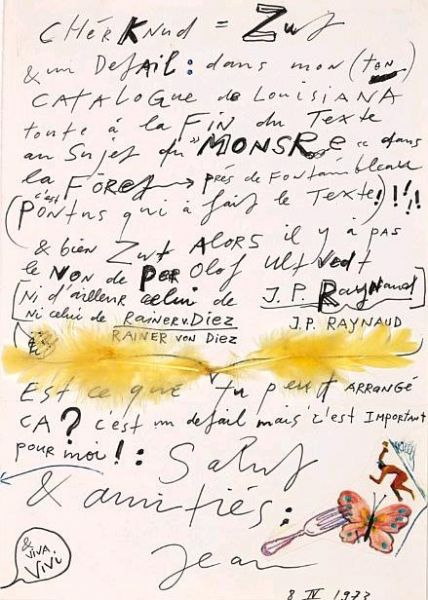 CHér Knud = Zut
& un Detail: dans mon (ton)
CATALOGUE de LouisiANA
toute à la FIN du Texte
au Sujet du "MONSRe" dans
la FÔRet → près de Fontainbleau
(c'est PONtus qui à fait le Texte)!!!!
& bien Zut ALORS il y à pas
le NON de PER Olof Ultvedt
[Ni d'ailleur celui de J.P. Raynaud]
Ni celui de RAINER v. Diez J.P. RAYNAUD
RAINER von Diez
Est ce que tu peut ARRANGÉ
ÇA? c'est un detail mais c'est IMPORTANT
pour moi!: Salut
& amitiés:
Jean
& VIVA
VIVI
8 IV 1973